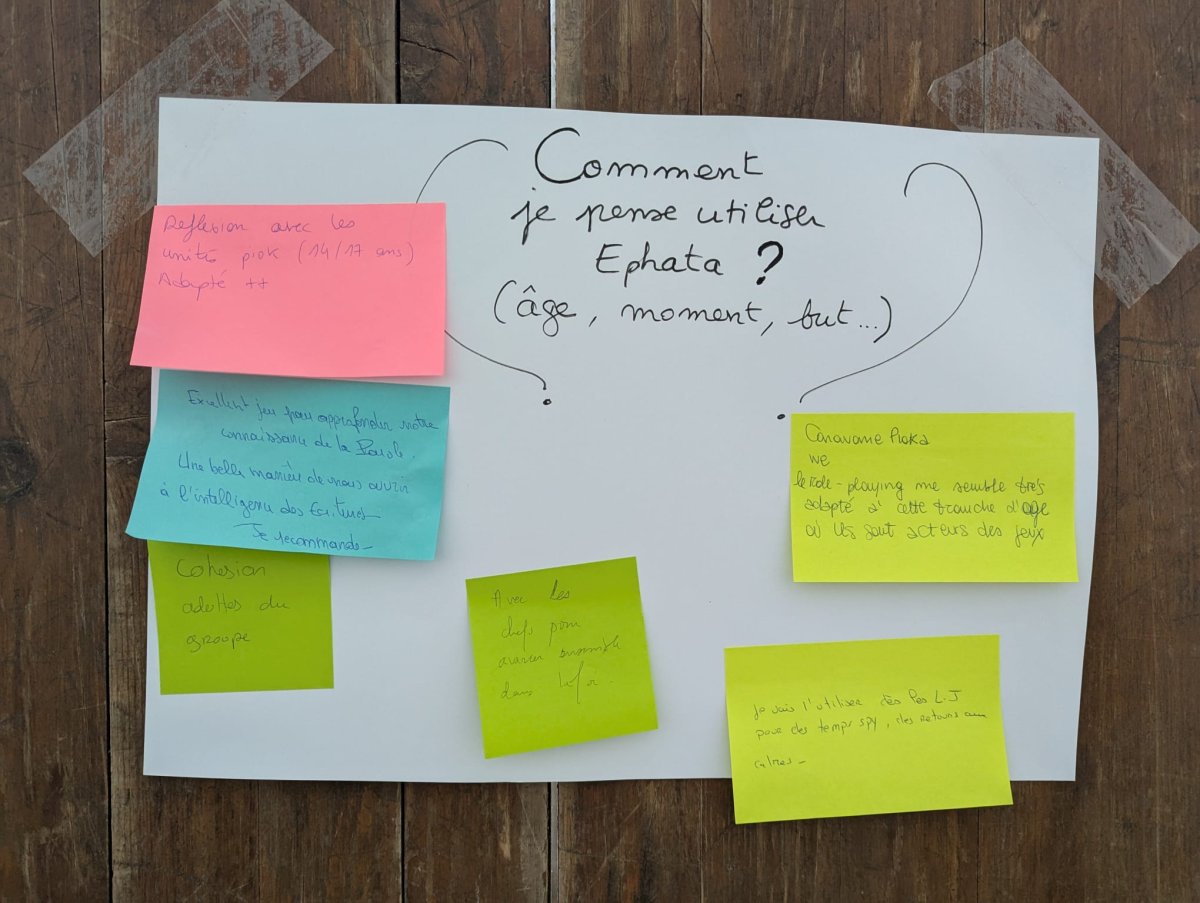 Comment
je pense utiliser
Ephata ?
(âge, moment, but...)
Réflexion avec les
unités piok (14/17 ans)
Adapté ++
Excellent jeu pour approfondir notre
connaissance de la Parole.
Une belle manière de nous ouvrir
à l'intelligence des Ecritures
Je recommande
Cohésion
du
groupe
Avec les
chefs pour
avancer ensemble
dans la foi.
Caravane Pioka
we
le role-playing me semble très
adapté à cette tranche d'age
où ils sont acteurs des jeux
Je vais l'utiliser dès les L.J
pour des temps spy, des retours aux
calmes